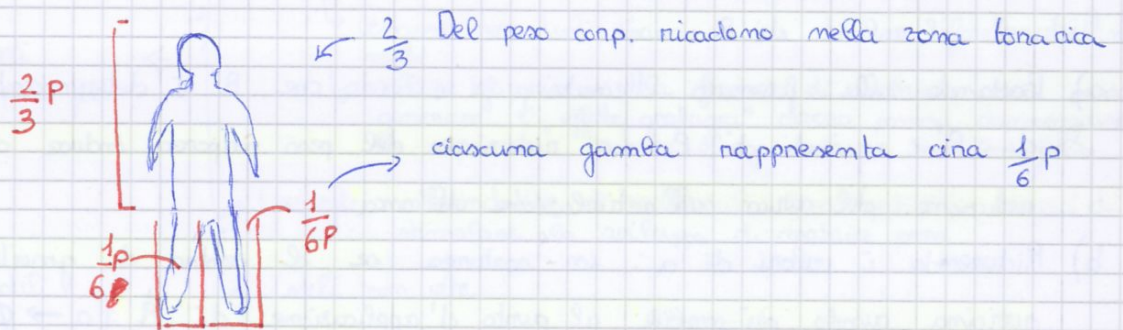 2/3 Del peso corp. ricadono nella zona toracica
2/3 P
ciascuna gamba rappresenta circa 1/6 P
1/6 P
1/6 P